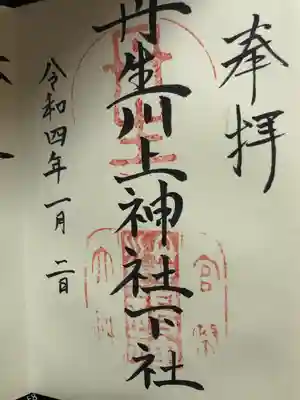 奉拝
丹生川上神社下社
令和四年一月二日